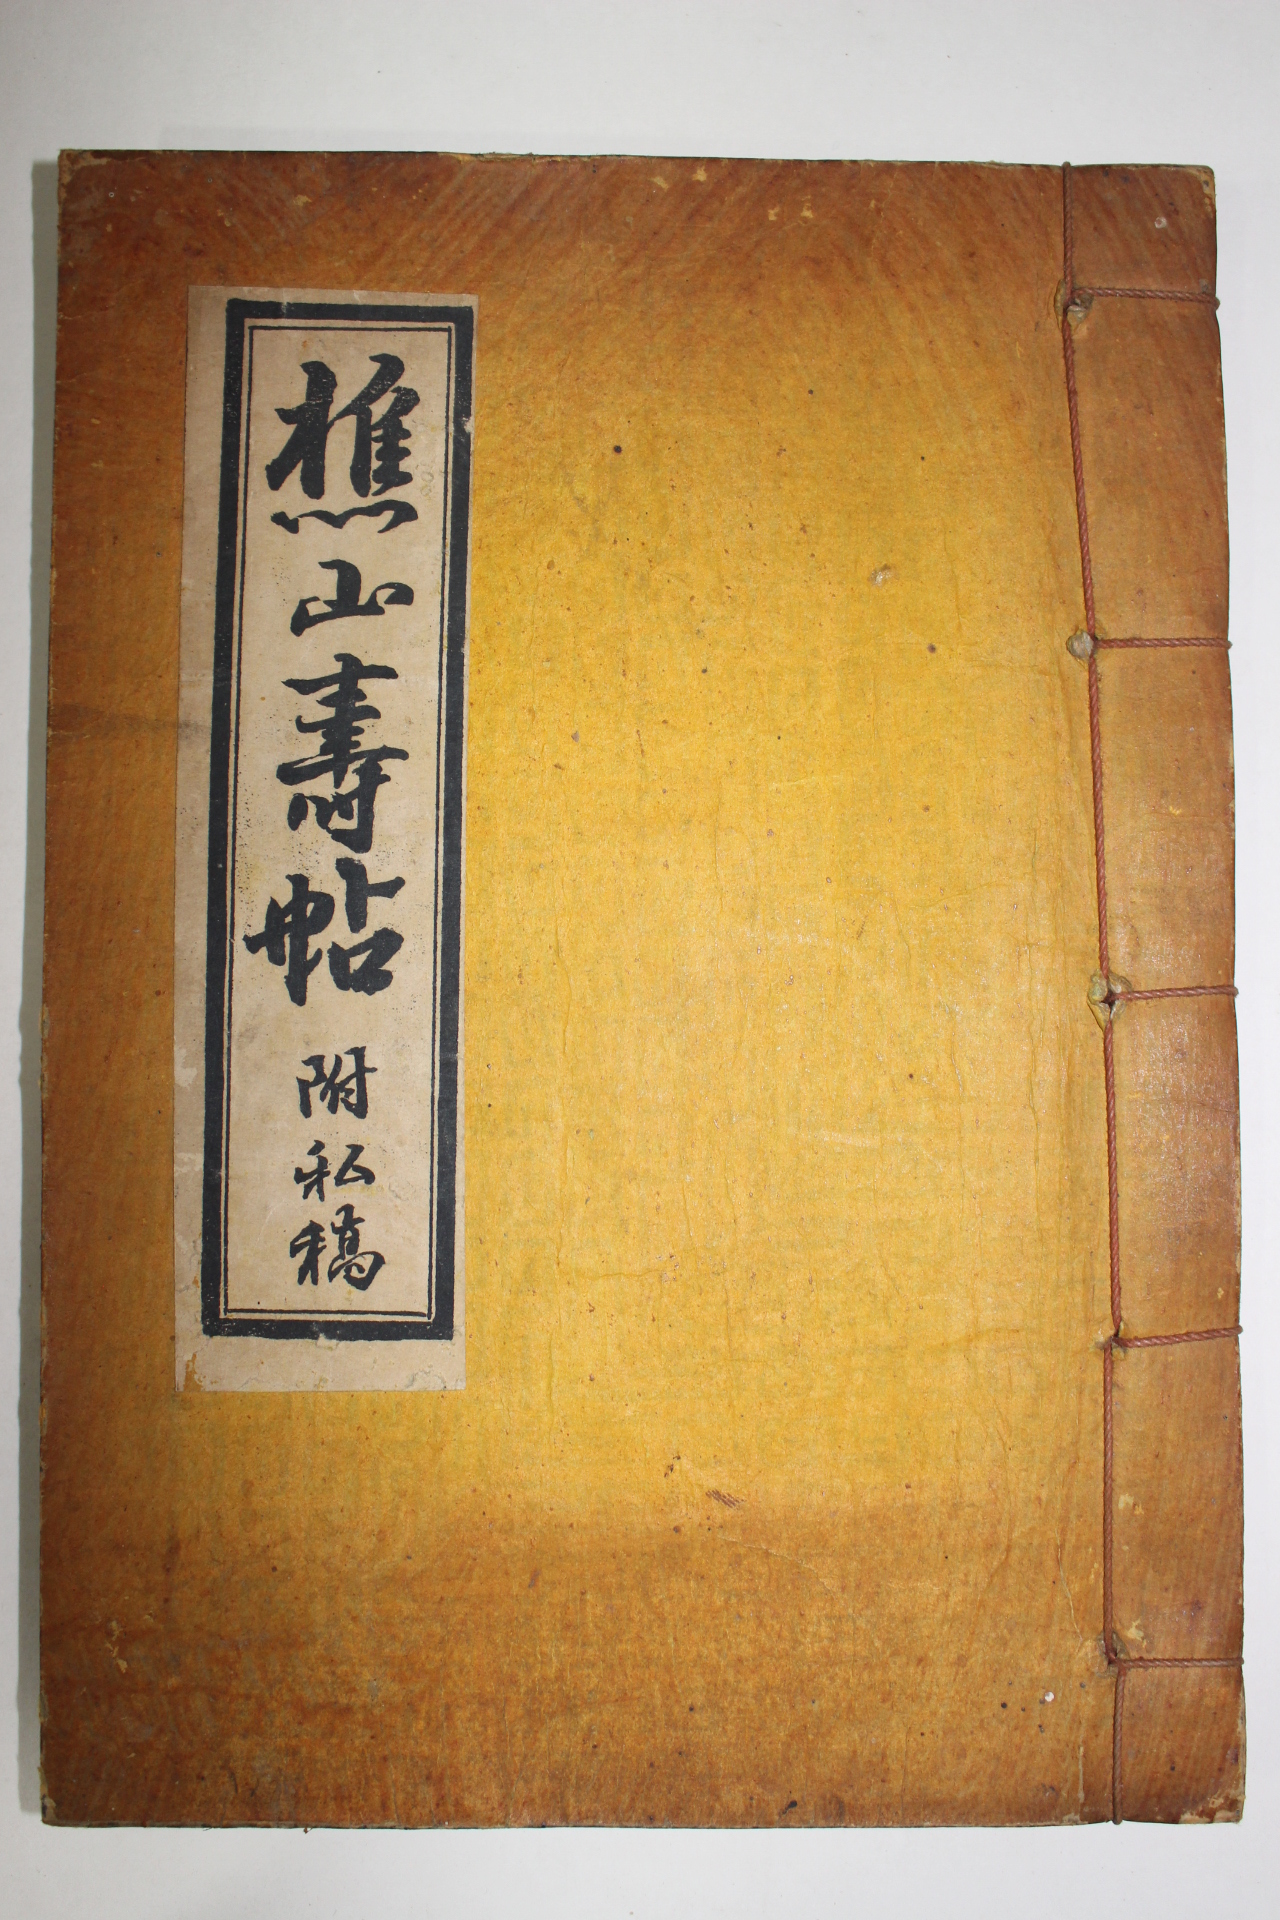 樵山壽帖 附私稿